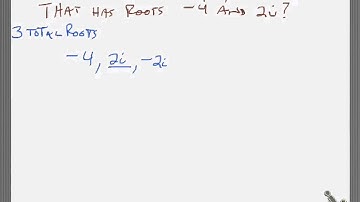 THAT HAS ROOTS -4 AND 2i?
3 TOTAL ROOTS
-4, 2i, -2i